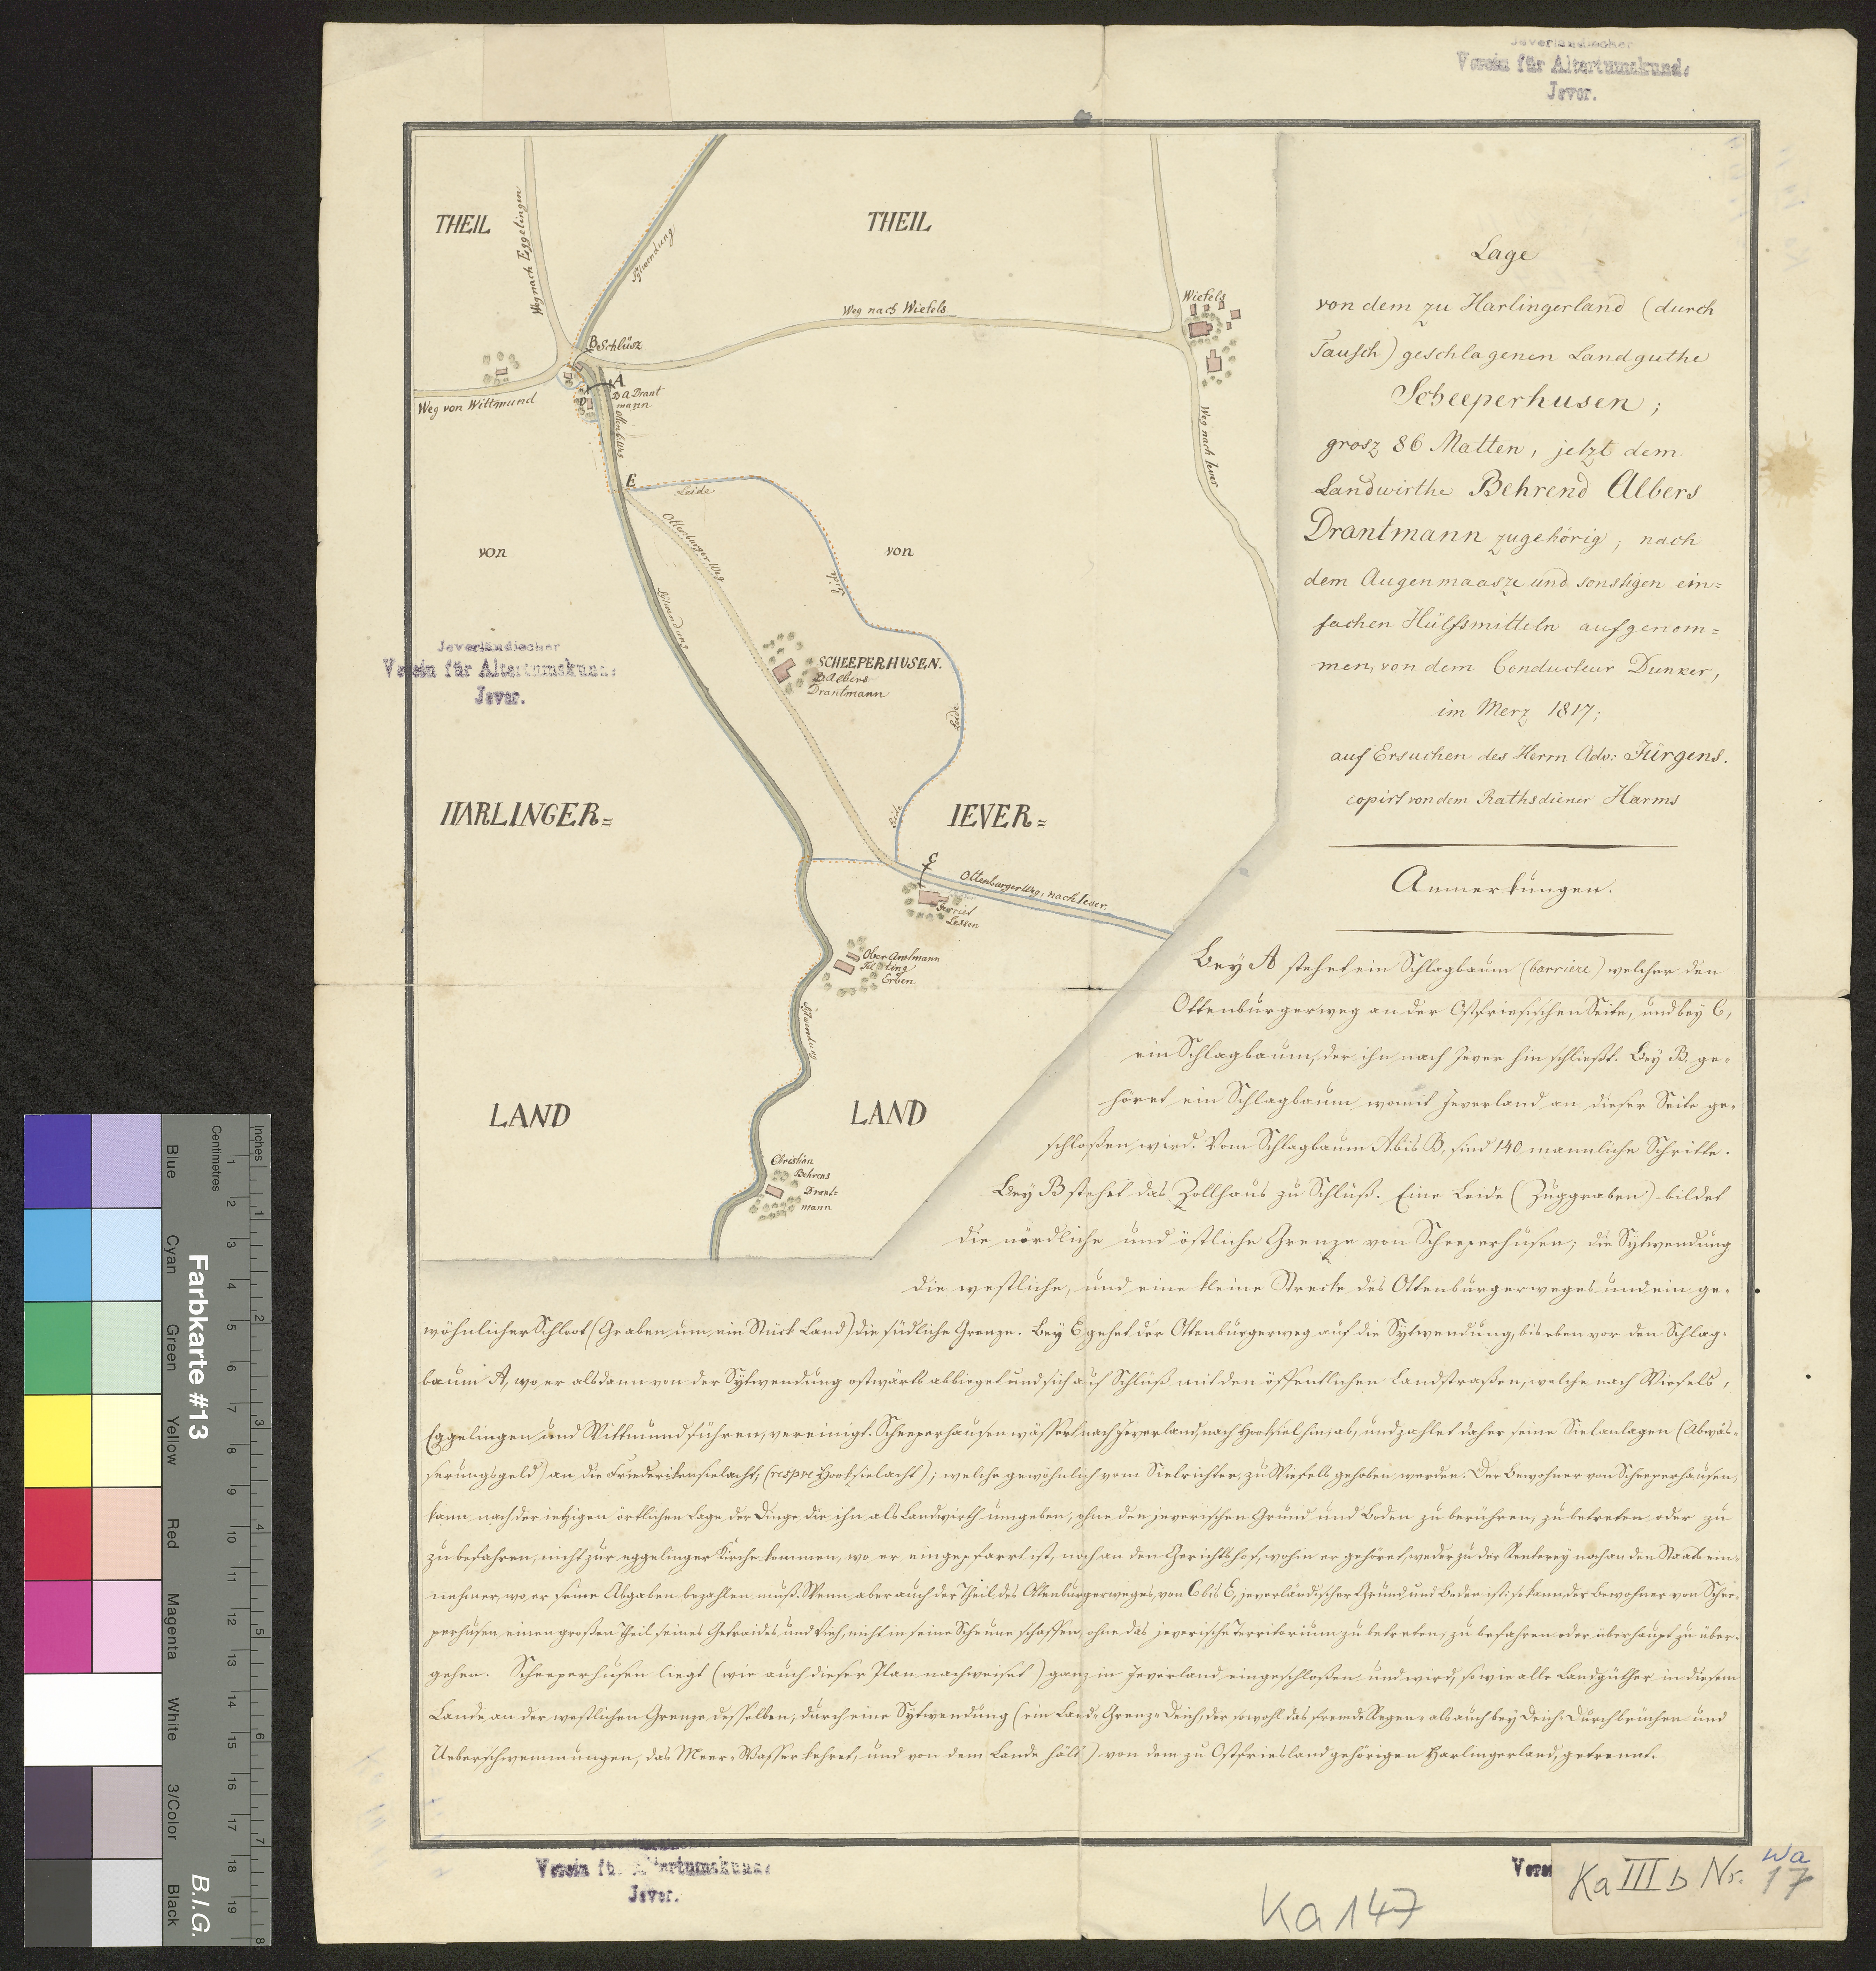 Jeverländischer
Verein für Altertumskunde
Jever.
THEIL
THEIL
Weg nach Eggelingen
Sylwendung
Weg nach Wiefels
Wiefels
B Schlüsz
A
D
B A Drant
mann
Weg von Wittmund
Weg nach Iever
E
Leide
Ottenburger Weg
Leide
von
von
Sylwendung
Jeverländischer
Verein für Altertumskunde
Jever.
SCHEEPERHUSEN.
B Albers
Drantmann
Leide
Leide
HARLINGER=
IEVER=
C
Ottenburger Weg, nach Iever.
Gerriet
Lessen
Ober Amtmann
Erben
Sylwendung
LAND
LAND
Christian
Behrens
Drant=
mann
Lage
von dem zu Harlingerland (durch
Tausch) geschlagenen Landguthe
Scheeperhusen;
grosz 86 Matten, jetzt dem
Landwirthe Behrend Albers
Drantmann zugehörig, nach
dem Augenmaasze und sonstigen ein=
fachen Hülfsmitteln aufgenom=
men, von dem Conducteur Dunker,
im Merz 1817;
auf Ersuchen des Herrn Adv: Jürgens.
copirt von dem Rathsdiener Harms
Anmerkungen.
Bey A stehet ein Schlagbaum (barriere) welcher den
Ottenburgerweg an der Ostfriesischen Seite, und bey C,
ein Schlagbaum, der ihn nach Jever hin schließt. Bey B. ge=
höret ein Schlagbaum womit Jeverland an dieser Seite ge=
schloßen wird. Vom Schlagbaum A bis B, sind 140 mannliche Schritte.
Bey B stehet das Zollhaus zu Schlüß. Eine Leide (Zuggraben) bildet
die nördliche und östliche Grenze von Scheeperhusen; die Sylwendung
die westliche, und eine kleine Strecke des Ottenburgerweges und ein ge=
wöhnlicher Schloot (Graben um ein Stück Land) die südliche Grenze. Bey E gehet der Ottenburgerweg auf die Sylwendung, bis eben vor den Schlag=
baum A, wo er alsdann von der Sylwendung ostwärts abbieget und sich auf Schlüß mit den öffentlichen Landstraßen, welche nach Wiefels,
Eggelingen und Wittmund führen, vereinigt. Scheeperhausen wässert nach Jeverland, nach Hooksiel hin, ab, und zahlet daher seine Sielanlagen (Abwäs=
serungsgeld) an die Friederikensielacht, (respve Hooksielacht); welche gewöhnlich vom Sielrichter, zu Wiefels gehoben werden. Der Bewohner von Scheeperhausen,
kann nach der ietzigen örtlichen Lage der Dinge die ihn als Landwirth umgeben, ohne den jeverischen Grund und Boden zu berühren, zu betreten oder zu
zu befahren, nicht zur eggelinger Kirche kommen, wo er eingepfarrt ist, noch an den Gerichtshof, wohin er gehöret, weder zu der Renterey noch an den Staats ein=
nehmer, wo er seine Abgaben bezahlen muß. Wenn aber auch der Theil des Ottenburgerweges, von C bis E, jeverländischer Grund und Boden ist: so kann der Bewohner von Schee=
perhusen, einen großen Theil seines Getraides und Vieh, nicht in seine Scheune schaffen, ohne das jeverische Territorium zu betreten, zu befahren oder überhaupt zu über=
gehen. Scheeperhusen liegt (wie auch dieser Plan nachweiset) ganz in Jeverland eingeschloßen und wird, so wie alle Landgüther in diesem
Lande an der westlichen Grenze desselben, durch eine Sylwendung (ein Land= Grenz= Deich, der sowohl das fremde Regen= als auch bey Deich= Durchbrüchen und
Ueberschwemmungen, das Meer= Wasser kehret, und von dem Lande hält) von dem zu Ostfriesland gehörigen Harlingerland, getrennt.
Verein für Altertumskunde
Jever.
Verei
Ka III b Nr. 17
Wa
Ka 147
Farbkarte #13
B.I.G.
Inches
Centimetres
1 2 3 4 5 6 7 8 9 10 11 12 13 14 15 16 17 18 19
1 2 3 4 5 6 7 8
Blue
Cyan
Green
Yellow
Red
Magenta
White
3/Color
Black